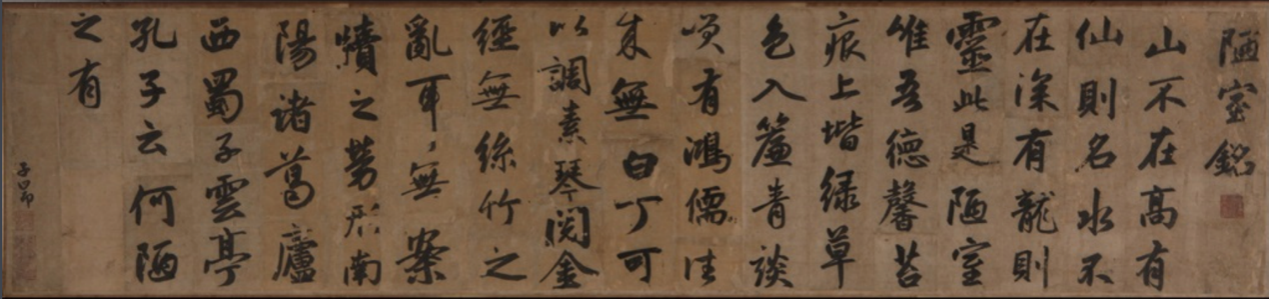 陋室銘
山不在高有
仙則名水不
在深有龍則
靈此是陋室
惟吾德馨苔
痕上堦緑草
色入簾青談
咲有鴻儒往
來無白丁可
以調素琴閲金
經無絲竹之
亂耳無案
牘之勞形南
陽諸葛廬
西蜀子雲亭
孔子云何陋
之有
子昂